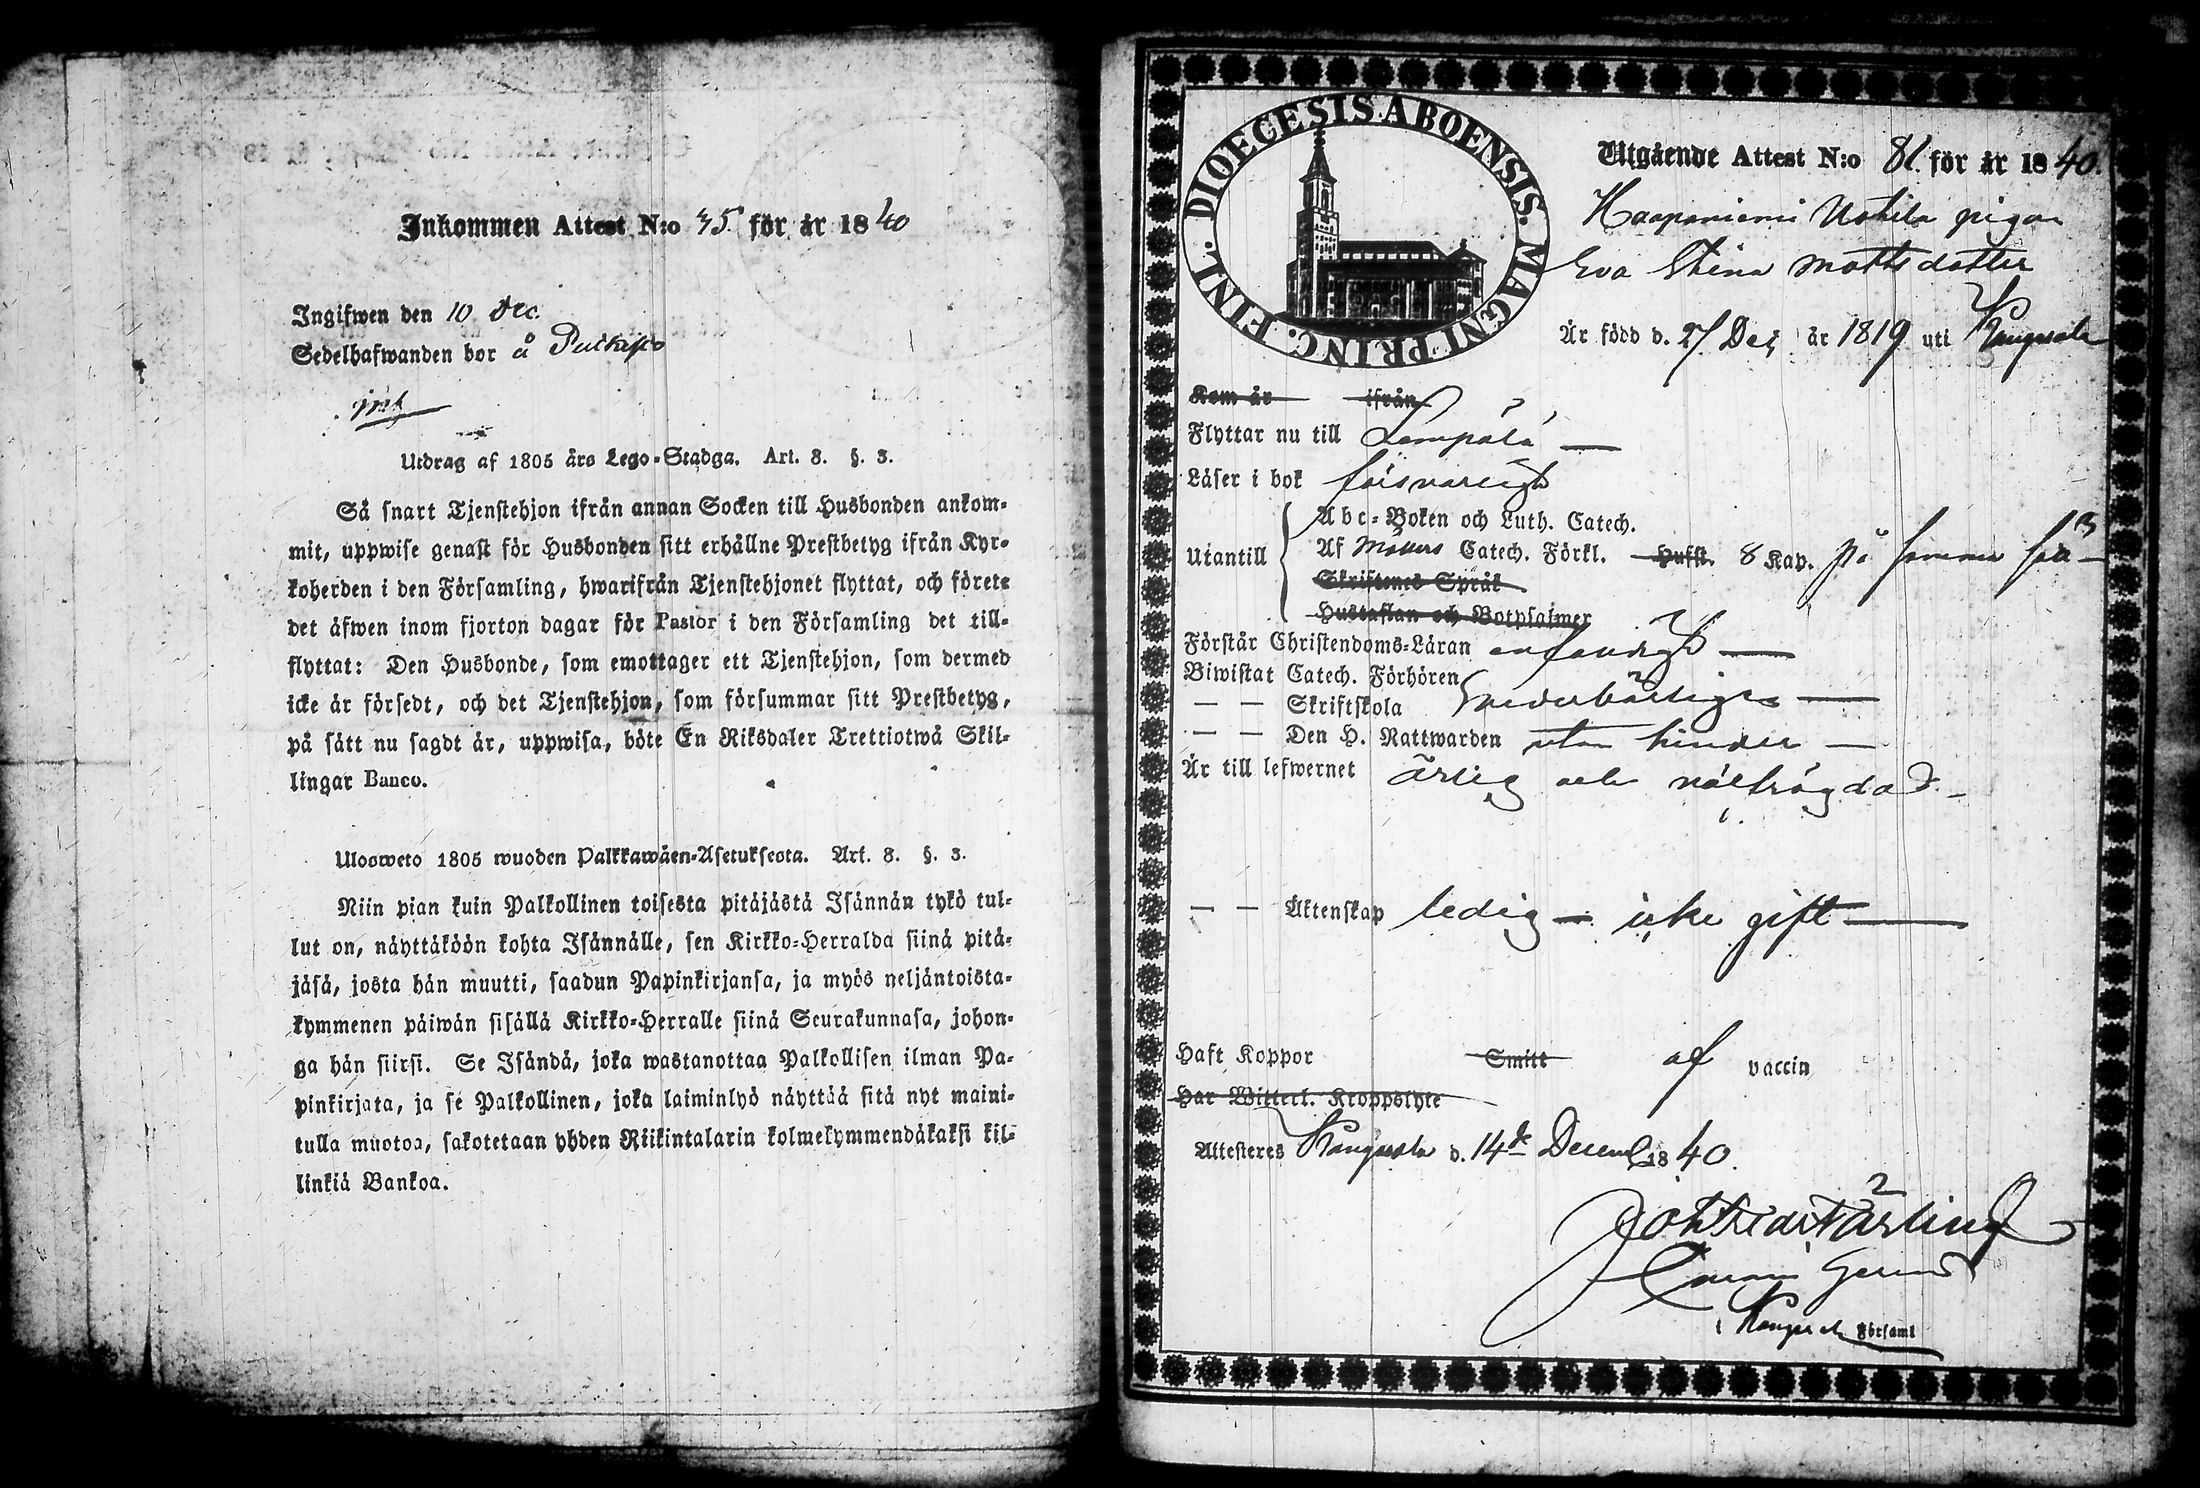 Inkommen Attest N:o 35 för år 1840
Ingifwen den 10 Dec.
Sedelhafwanden bor å
Utdrag af 1805 års Lego-Stadga. Art. 8. §. 3.
Så snart Tjenstehjon ifrån annan Socken till Husbonden ankom-
mit, uppwise genast för Husbonden sitt erhållne Prestbetyg ifrån Kyr-
koherden i den Församling, hwarifrån Tjenstehjonet flyttat, och förete
det äfwen inom fjorton dagar för Pastor i den Församling det till-
flyttat: Den Husbonde, som emottager ett Tjenstehjon, som dermed
icke är försedt, och det Tjenstehjon, som försummar sitt Prestbetyg,
på sätt nu sagdt är, uppwisa, böte En Riksdaler Trettiotwå Skil-
lingar Banco.
Ulosweto 1805 wuoden Palkkawäen-Asetuksesta. Art. 8. §. 3.
Niin pian kuin Palkollinen toisesta pitäjästä Isännän tykö tul-
lut on, näyttäköön kohta Isännälle, sen Kirkko-Herralda siinä pitä-
jäsä, josta hän muutti, saadun Papinkirjansa, ja myös neljäntoista-
kymmenen päiwän sisällä Kirkko-Herralle siinä Seurakunnasa, johon-
ga hän siirsi. Se Isändä, joka wastanottaa Palkollisen ilman Pa-
pinkirjata, ja se Palkollinen, joka laiminlyö näyttää sitä nyt maini-
tulla muotoa, sakotetaan yhden Riikintalarin kolmekymmendäkaksi kil-
linkiä Bankoa.
DIOECESIS ABOENSIS. MAGNI PRINC. FINL.
Utgående Attest N:o 81 för år 1840.
Haapaniemi Uotila pigan
Eva Stina Mattsdotter
Är född d. 27 Dec. år 1819 uti Kangasala
Kom år ifrån
Flyttar nu till Lempälä
Läser i bok försvarligt
Abc-Boken och Luth. Catech.
Utantill Af Möllers Catech. Förkl. Husst. 8 Kap. på samma sätt
Skriftenes Språk
Hustaflan och Botpsalmer
Förstår Christendoms-Läran enfaldigt
Biwistat Catech. Förhören
— — Skriftskola vederbörligen
— — Den H. Nattwarden utan hinder
Är till lefwernet ärlig och välfrägdad
— — Äktenskap ledig — icke gift
Haft Koppor Smitt af vaccin
Har Witterl. Kroppslyte
Attesteres Kangasala d. 14de Decemb 1840.
i Kangasala Församl